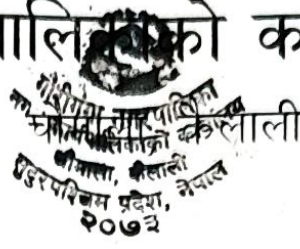 पालिकाको क
गौरीगंगा नगरपालिका
नगर कार्यपालिकाको कार्यालय
कैलाली
चौमाला, कैलाली
सुदूरपश्चिम प्रदेश, नेपाल
२०७३